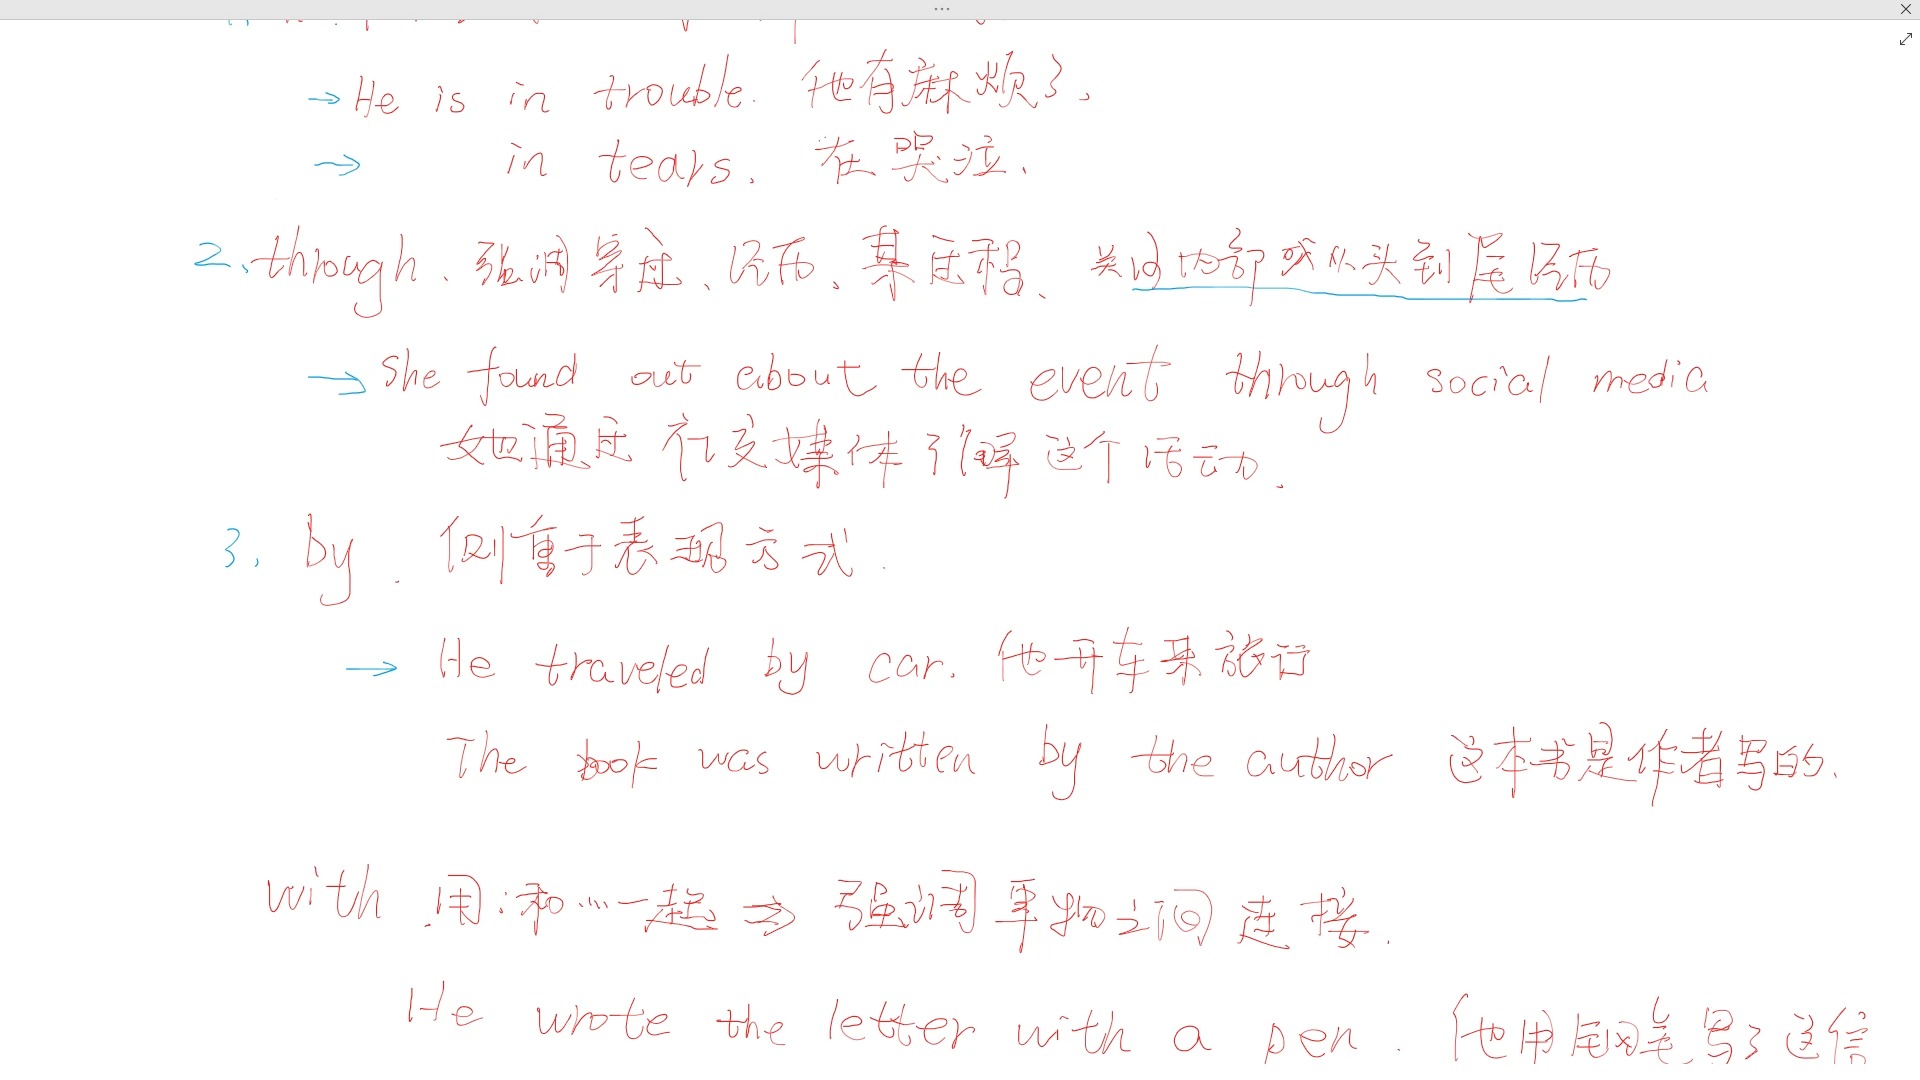 → He is in trouble. 他有麻烦了、
→ in tears. 在哭泣、
2、through、强调穿过、经历、某过程、关注内部或从头到尾经历
→ She found out about the event through social media
她通过社交媒体了解这个活动.
3. by. 侧重于表现方式.
→ He traveled by car. 他开车来旅行
The book was written by the author 这本书是作者写的.
with 用:和…一起 ⇒ 强调事物之间连接.
He wrote the letter with a pen. 他用钢笔写了这信